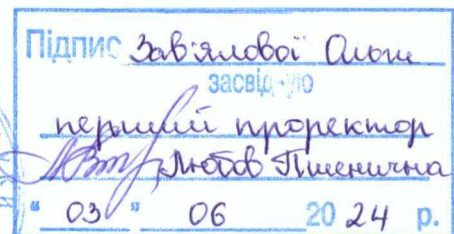 Підпис Зав'ялової Ольги
засвідчую
перший проректор
Любов Пшенична
"03" 06 2024 р.